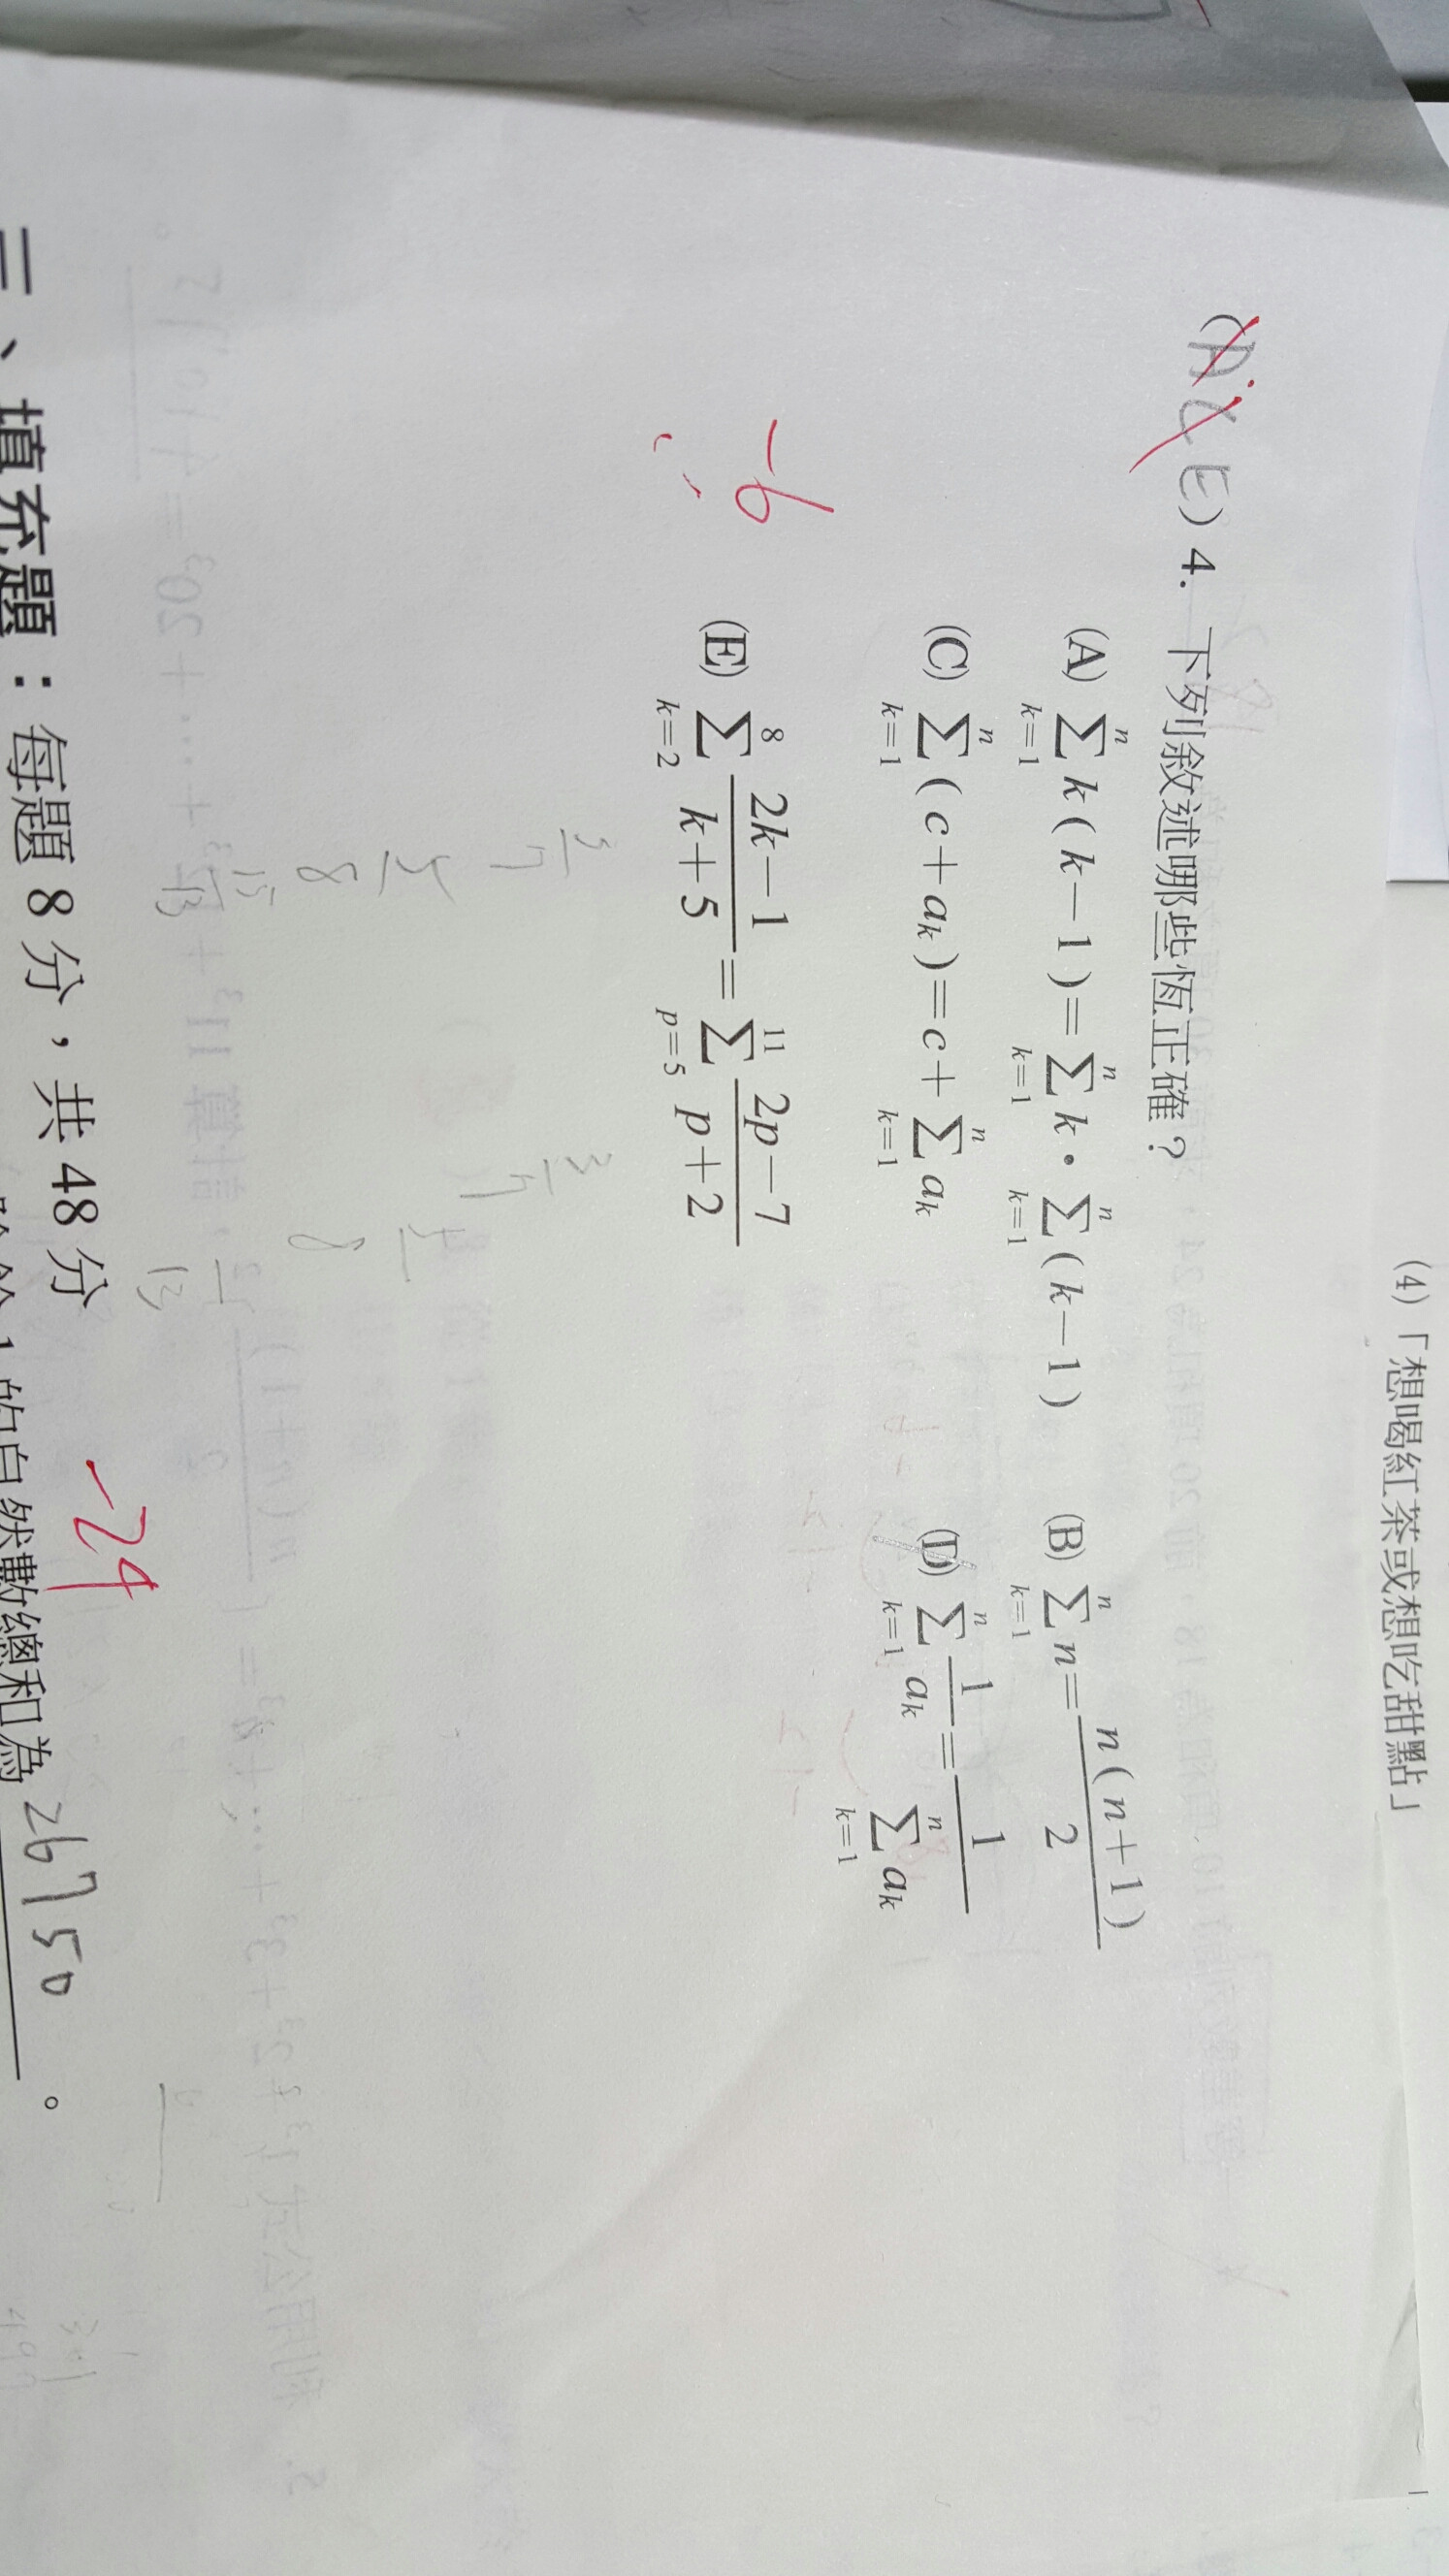 (4)「想喝紅茶或想吃甜點」
(A C E) 4. 下列敘述哪些恆正確？
(A) \sum_{k=1}^{n} k(k-1) = \sum_{k=1}^{n} k · \sum_{k=1}^{n} (k-1)　(B) \sum_{k=1}^{n} n = \frac{n(n+1)}{2}
(C) \sum_{k=1}^{n} (c+a_k) = c + \sum_{k=1}^{n} a_k　(D) \sum_{k=1}^{n} \frac{1}{a_k} = \frac{1}{\sum_{k=1}^{n} a_k}
-6
(E) \sum_{k=2}^{8} \frac{2k-1}{k+5} = \sum_{p=5}^{11} \frac{2p-7}{p+2}
\frac{3}{7}　\frac{3}{7}
\frac{5}{8}
\frac{15}{13}
-24
三、填充題：每題 8 分，共 48 分
的自然數總和為 26750 。